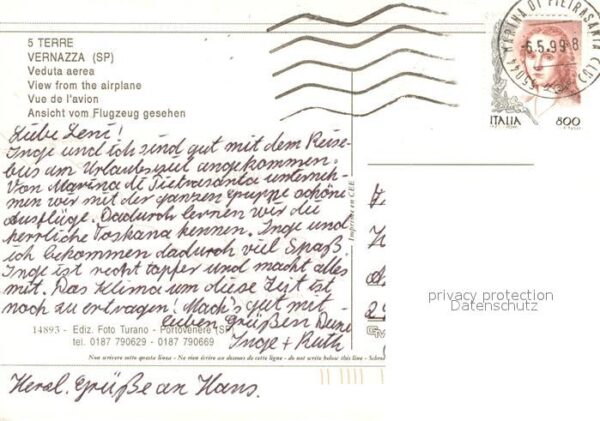 5 TERRE
VERNAZZA (SP)
Veduta aerea
View from the airplane
Vue de l'avion
Ansicht vom Flugzeug gesehen
55044 MARINA DI PIETRASANTA (LU)
-6.5.99-8
ITALIA 800
Liebe Leni!
Inge und ich sind gut mit dem Reise-
bus am Urlaubsziel angekommen.
Von Marina di Pietrasanta unterneh-
men wir mit der ganzen Gruppe schöne
Ausflüge. Dadurch lernen wir die
herrliche Toskana kennen. Inge und
ich bekommen dadurch viel Spaß.
Inge ist recht tapfer und macht alles
mit. Das Klima um diese Zeit ist
noch zu ertragen! Mach's gut mit
lieben Grüßen Deine
Inge + Ruth
14893 - Ediz. Foto Turano - Portovenere (SP)
tel. 0187 790629 - 0187 790669
Non scrivere sotto questa linea - Ne rien écrire au dessous de cette ligne - do not write below this line -
Herzl. Grüße an Hans.
Imprimé en CEE
privacy protection
Datenschutz